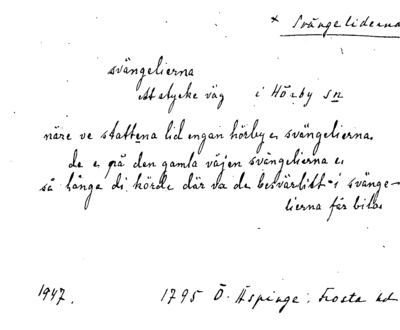 * Svängeliderna
svängelierna
ett stycke väg i Hörby sn
näre ve stattena lid engan hörby e svängelierna.
de e på den gamla väjen svängelierna e
så länge di körde där va de besvärlitt i svänge-
lierna får bila
1947. 1795 Ö. Äspinge. Frosta hd